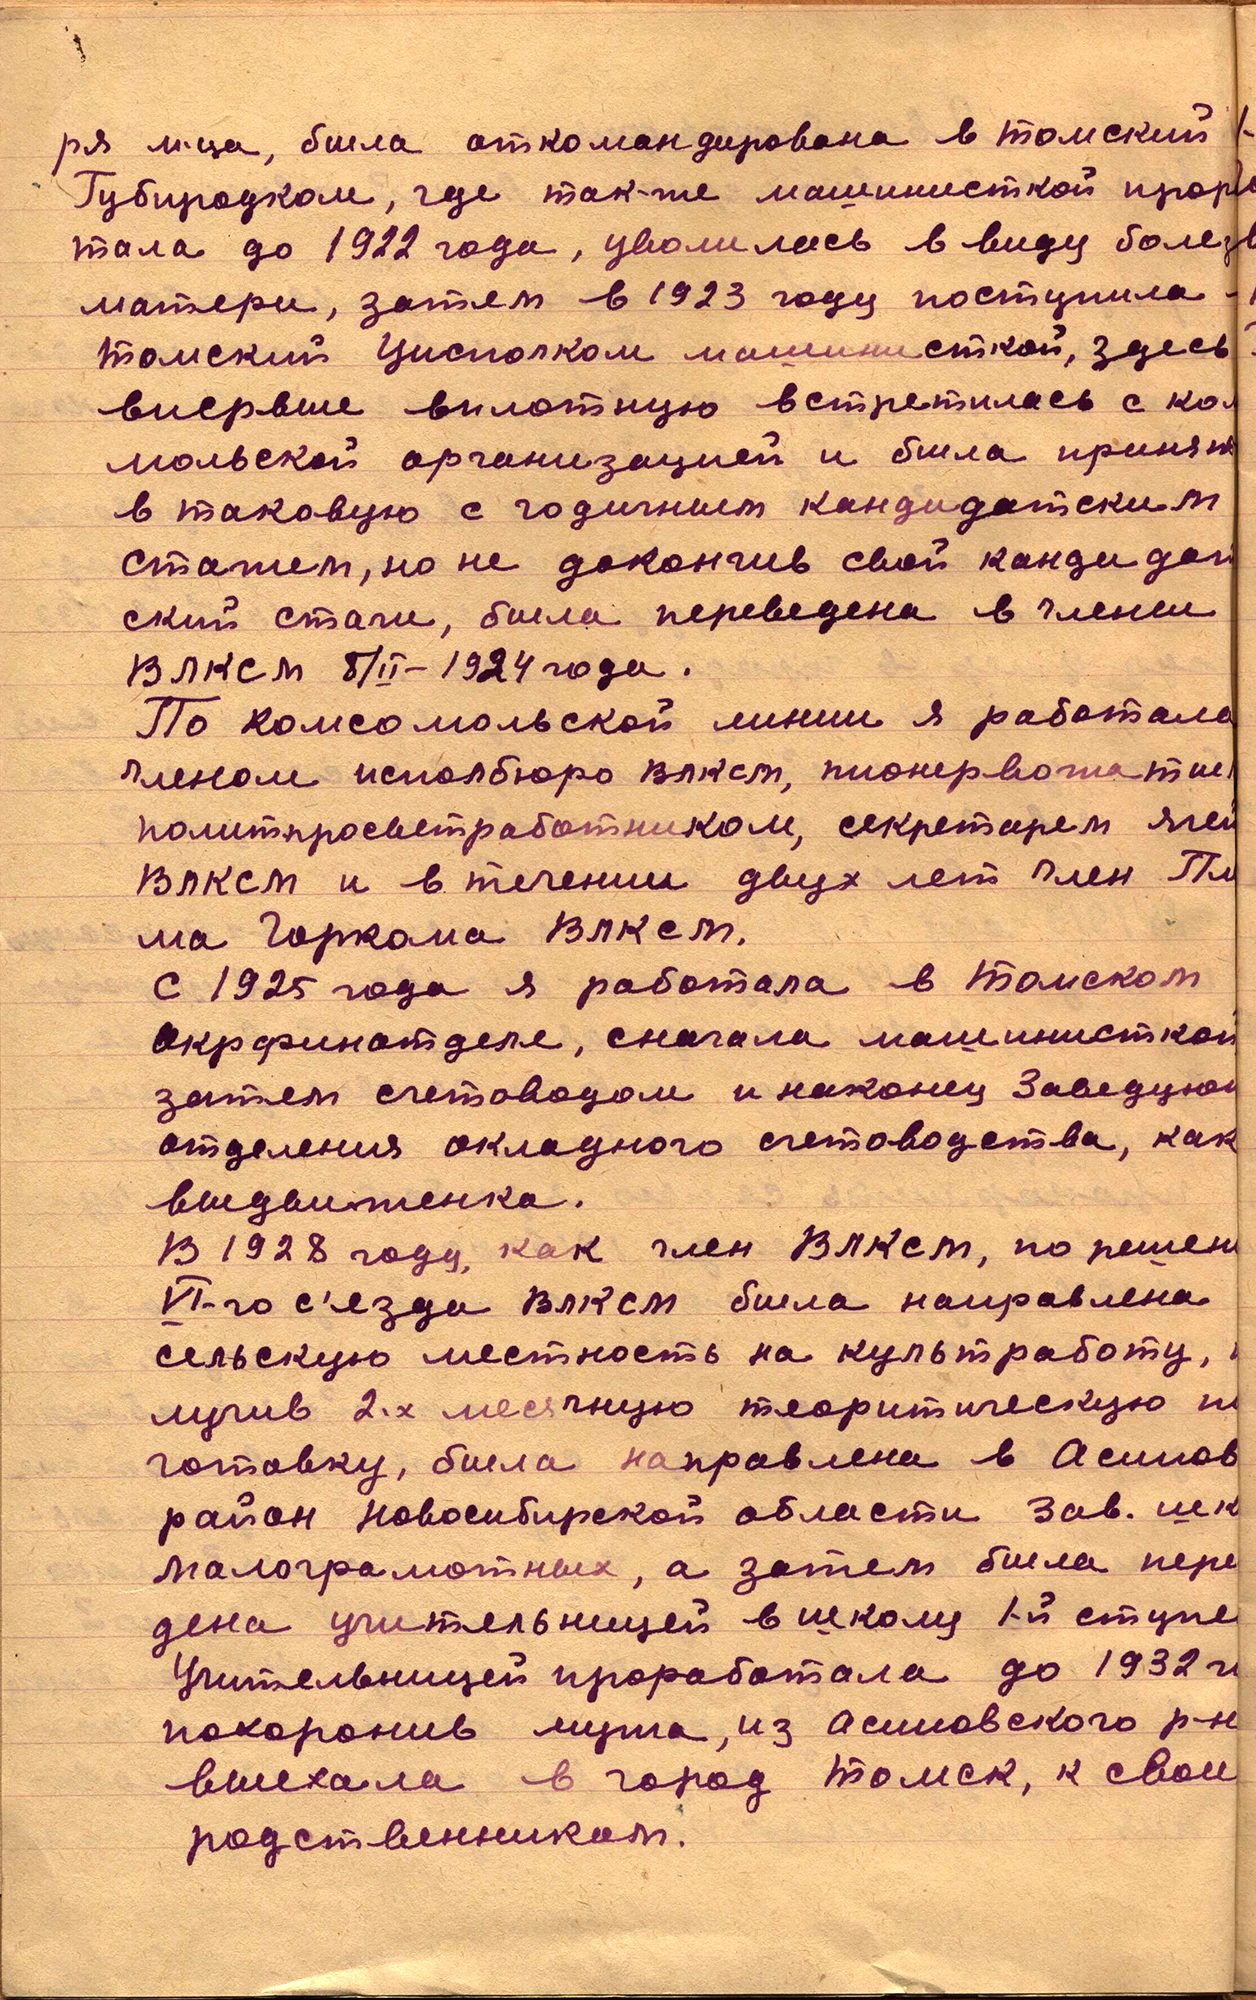 ря м-ца, была откомандирована в томский
Губпродком, где так-же машинисткой прора
тала до 1922 года, уволилась в виду болез
матери, затем в 1923 году поступила
томский Уисполком машинисткой, здесь
впервые вплотную встретилась с ком
мольской организацией и была принят
в таковую с годичным кандидатским
стажем, но не докончив свой кандидат
ский стаж, была переведена в члены
ВЛКСМ 8/II-1924 года.
По комсомольской линии я работала
членом исполбюро ВЛКСМ, пионервожатым
политпросветработником, секретарем ячей
ВЛКСМ и в течении двух лет член Пл
ма Горкома ВЛКСМ.
С 1925 года я работала в Томском
Окрфинотделе, сначала машинисткой
затем счетоводом и наконец Заведующ
отделения окладного счетоводства, как
выдвиженка.
В 1928 году, как член ВЛКСМ, по решени
VI-го с'езда ВЛКСМ была направлена
сельскую местность на культработу,
лучив 2-х месячную теоритическую п
готовку, была направлена в Асинов
район Новосибирской области Зав. шк
малограмотных, а затем была пере
дена учительницей в школу 1-й ступе
Учительницей проработала до 1932 г
похоронив мужа, из Асиновского р-н
выехала в город Томск, к свои
родственникам.